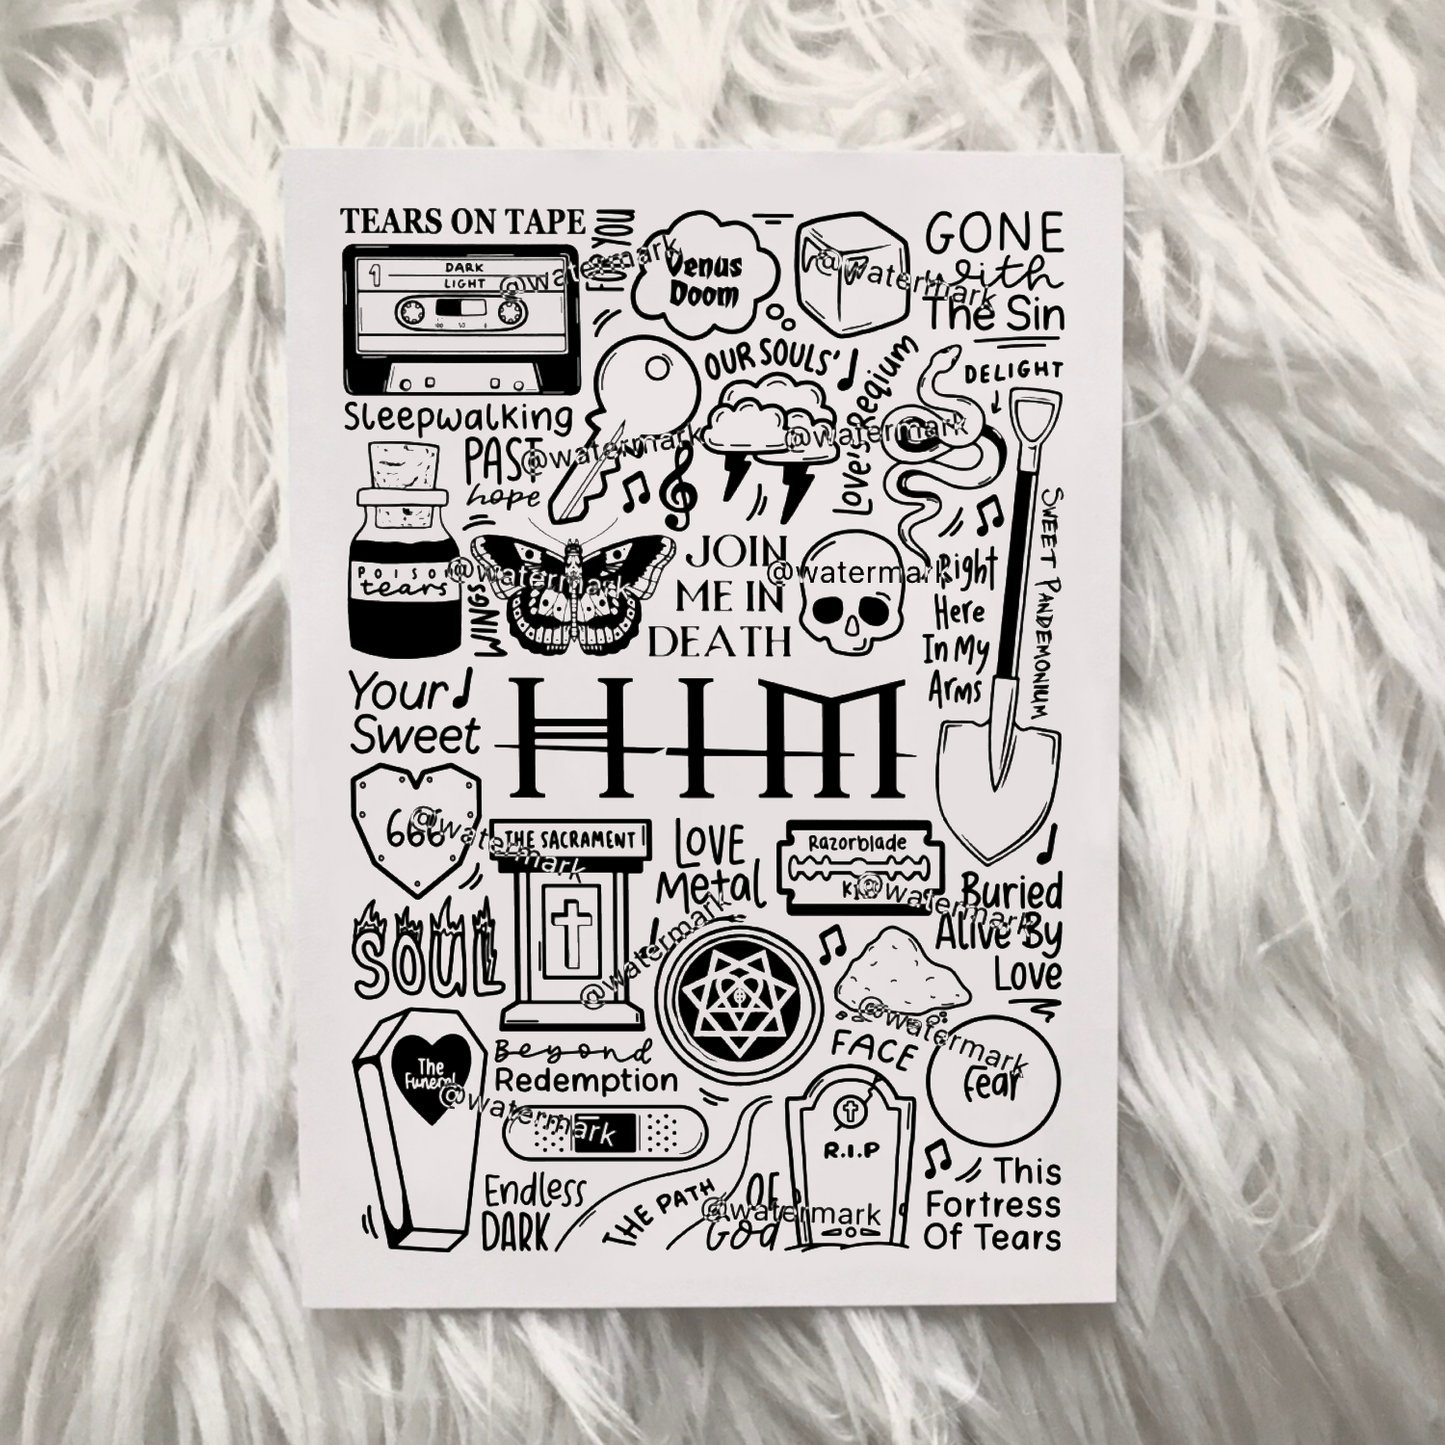 TEARS ON TAPE
FOR YOU
Venus
Doom
GONE
with
The Sin
1
DARK
LIGHT
OUR SOULS'
Love's Reqium
DELIGHT
Sleepwalking
PAST
hope
POISON
tears
WINGS
JOIN
ME IN
DEATH
Right
Here
In My
Arms
SWEET PANDEMONIUM
Your
Sweet
HIM
666
THE SACRAMENT
LOVE
Metal
Razorblade
Buried
Alive By
Love
SOUL
FACE
Fear
The
Funeral
Beyond
Redemption
R.I.P
Endless
DARK
THE PATH
OF
God
This
Fortress
Of Tears
@watermark
@watermark
@watermark
@watermark
@watermark
@watermark
@watermark
@watermark
@watermark
@watermark
@watermark
@watermark